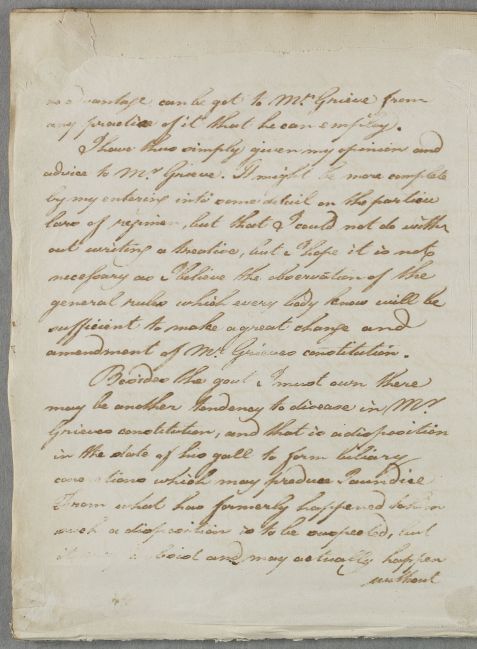 no advantage can be got to Mr. Grieve from
any practice of it that he can employ.
I have thus simply given my opinion and
advice to Mr. Grieve. It might be more complete
by my entering into some detail on the particu
lars of regimen, but that I could not do with
out writing a treatise, but I hope it is not
necessary as I believe the observation of the
general rules which every body know will be
sufficient to make a great change and
amendment of Mr. Grieves constitution.
Besides the gout I must own there
may be another tendency to disease in Mr.
Grieves constitution, and that is a disposition
in the state of his gall to form biliary
concretions which may produce Jaundice
From what has formerly happened to him
such a disposition is to be suspected, but
it may be avoid and may actually happen
without